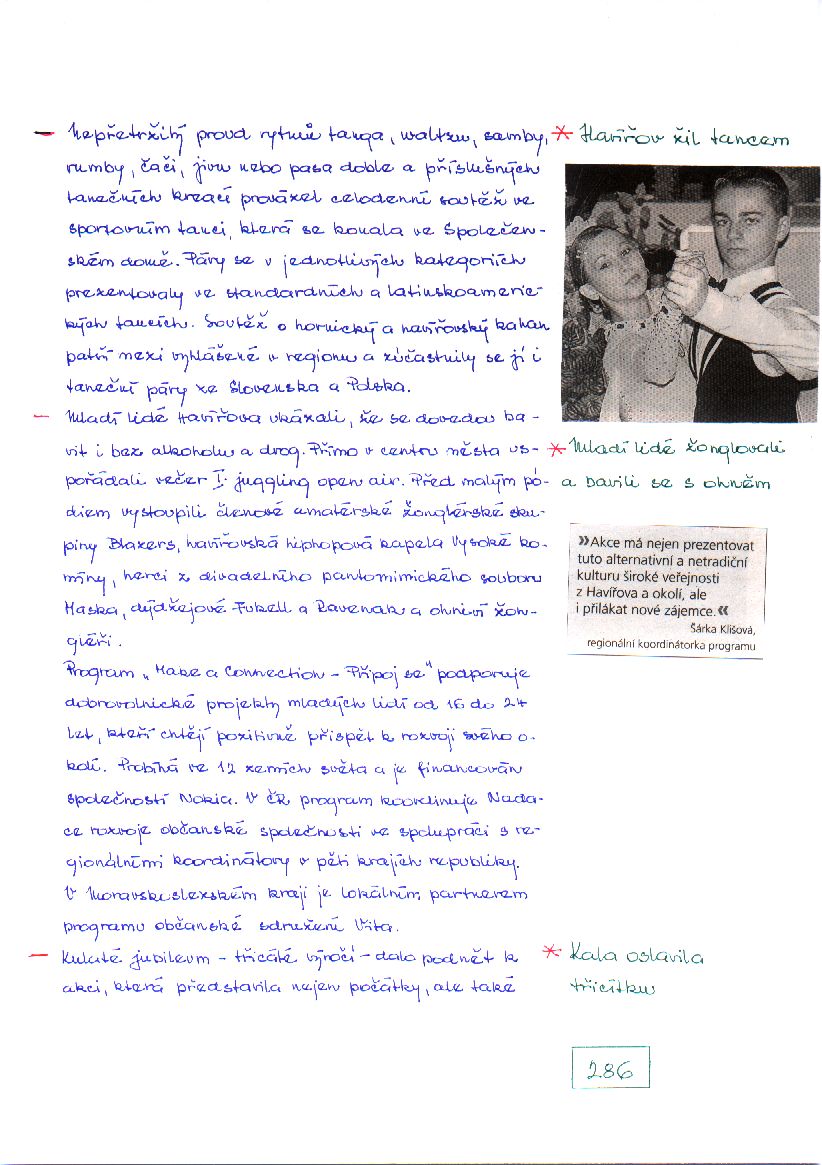 – Nepřetržitý proud rytmů tanga, waltzu, samby,
rumby, čači, jivu nebo pasa doble a příslušných
tanečních kreací provázel celodenní soutěž ve
sportovním tanci, která se konala ve Společen-
ském domě. Páry se v jednotlivých kategoriích
prezentovaly ve standardních a latinskoameric-
kých tancích. Soutěž o hornický a havířovský kahan
patří mezi vyhlášené v regionu a zúčastnily se jí i
taneční páry ze Slovenska a Polska.
– Mladí lidé Havířova ukázali, že se dovedou ba-
vit i bez alkoholu a drog. Přímo v centru města us-
pořádali večer I. juggling open air. Před malým pó-
diem vystoupili členové amatérské žonglérské sku-
piny Blazers, havířovská hiphopová kapela Vysoké ko-
míny, herci z divadelního pantomimického souboru
Maska, dýdžejové Fukell a Ravenak a ohniví žon-
gléři.
Program „Make a Connection – Připoj se" podporuje
dobrovolnické projekty mladých lidí od 16 do 24
let, kteří chtějí pozitivně přispět k rozvoji svého o-
kolí. Probíhá ve 12 zemích světa a je financován
společností Nokia. V ČR program koordinuje Nada-
ce rozvoje občanské společnosti ve spolupráci s re-
gionálními koordinátory v pěti krajích republiky.
V Moravskuslezském kraji je lokálním partnerem
programu občanské sdružení Vita.
– Kulaté jubileum – třicáté výročí – dalo podnět k
akci, která představila nejen počátky, ale také
* Havířov žil tancem
* Mladí lidé žonglovali
a bavili se s ohněm
»Akce má nejen prezentovat
tuto alternativní a netradiční
kulturu široké veřejnosti
z Havířova a okolí, ale
i přilákat nové zájemce.«
Šárka Klišová,
regionální koordinátorka programu
* Kala oslavila
třicítku
286